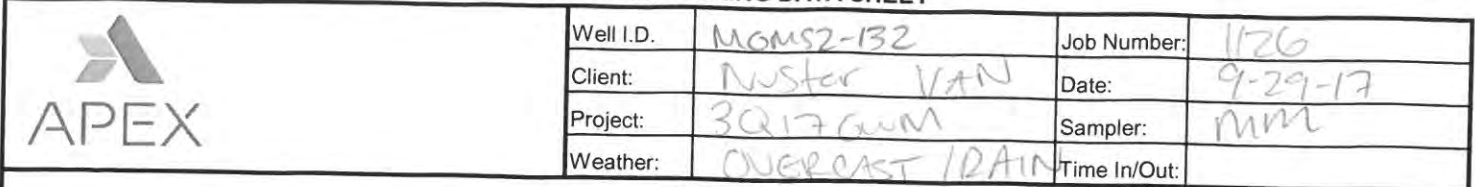 APEX
Well I.D. MGMS2-132 Job Number: 1126
Client: NuStar VAN Date: 9-29-17
Project: 3Q17 GWM Sampler: MM
Weather: OVERCAST / RAIN Time In/Out: